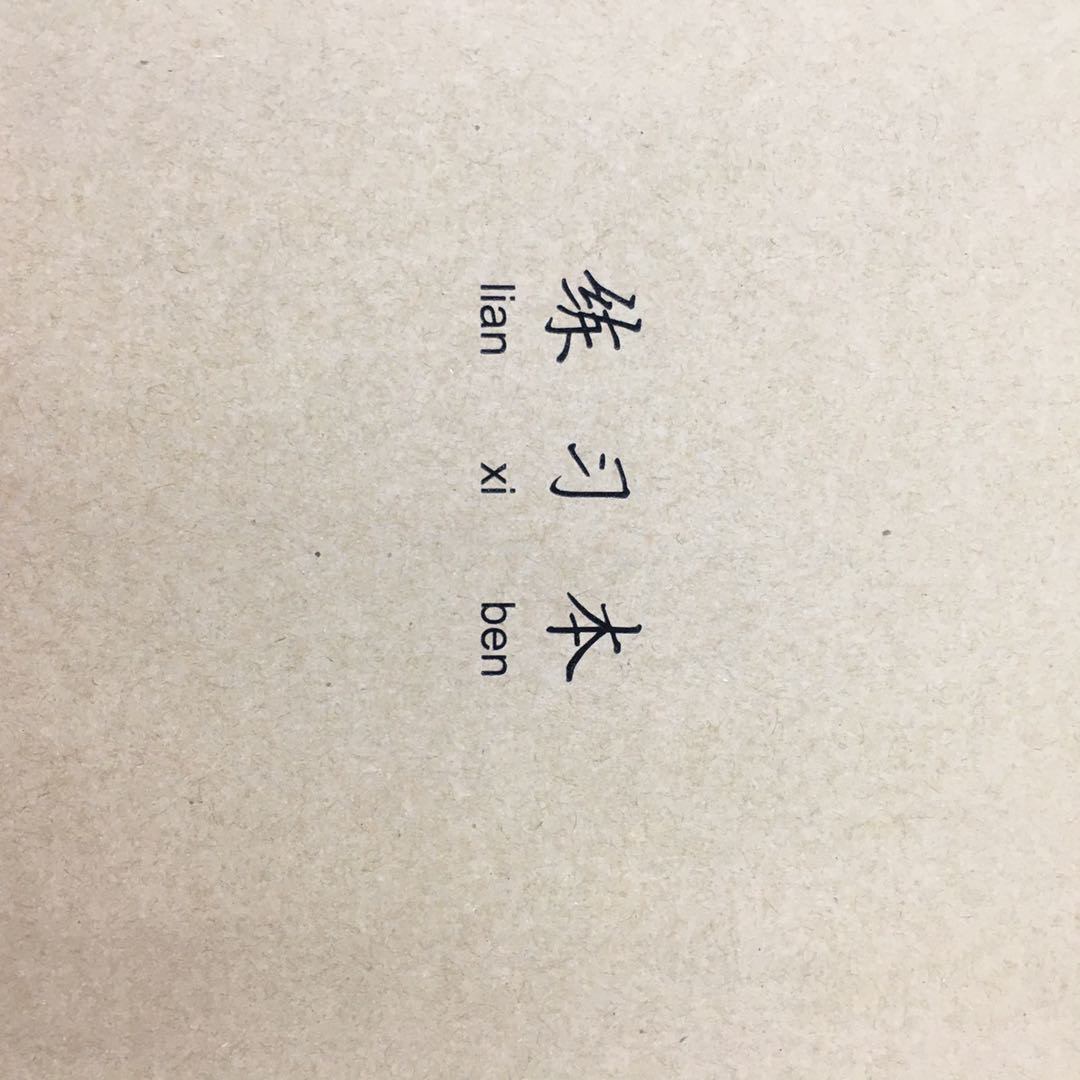 练习本
lian xi ben